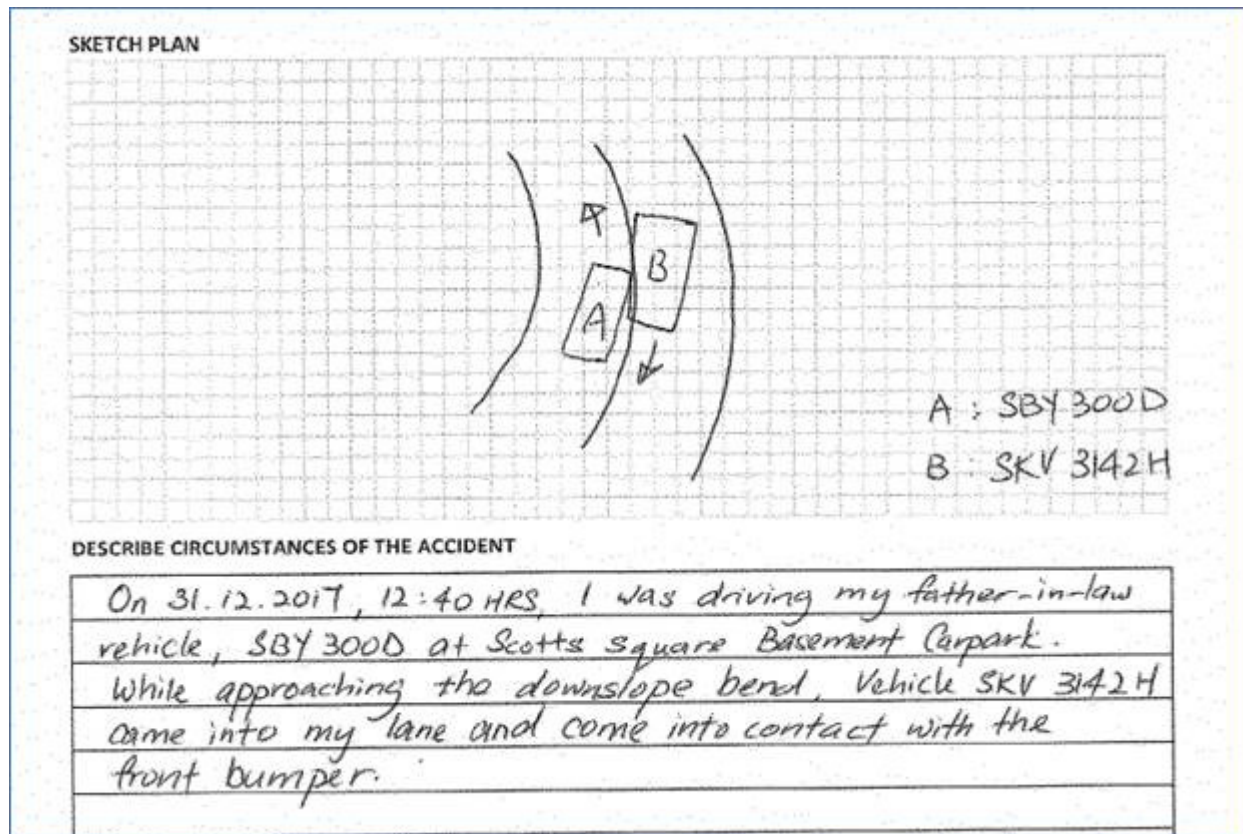 SKETCH PLAN
B
A
A : SBY 300D
B : SKV 3142H
DESCRIBE CIRCUMSTANCES OF THE ACCIDENT
On 31.12.2017, 12:40 HRS, I was driving my father-in-law
vehicle, SBY 300D at Scotts Square Basement Carpark.
While approaching the downslope bend, Vehicle SKV 3142H
came into my lane and come into contact with the
front bumper.